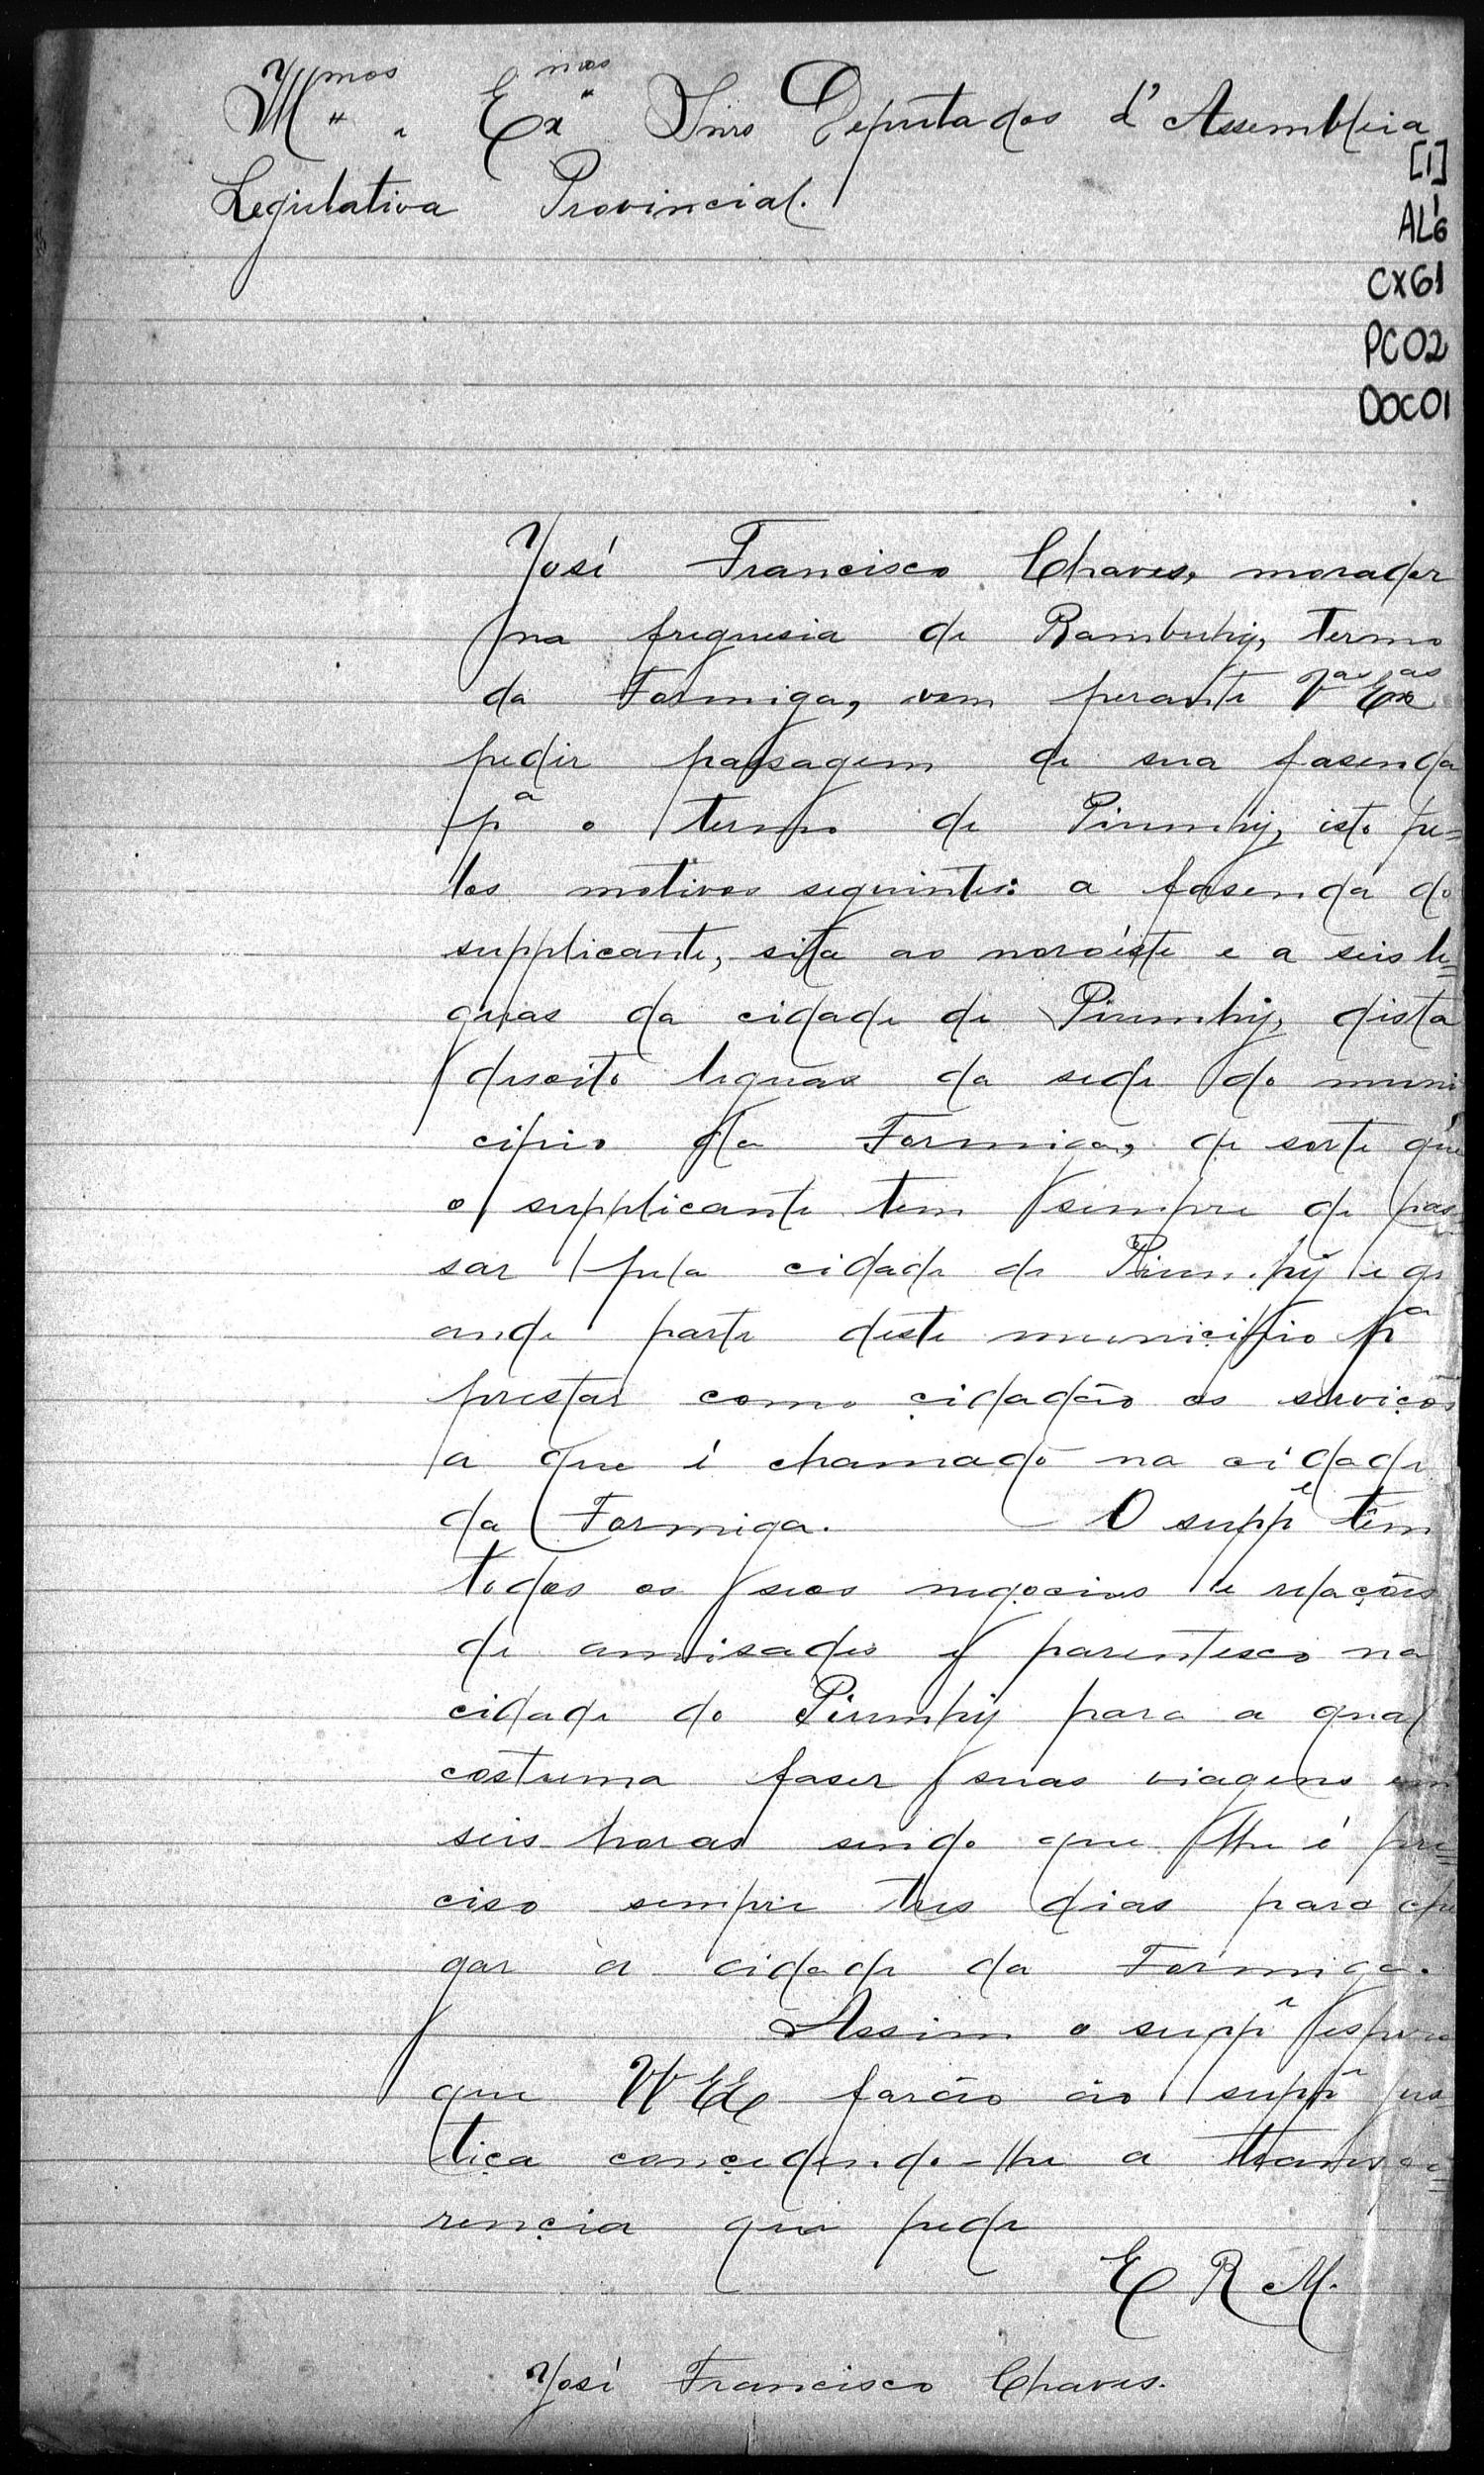 Illmos e Exmos Snrs Deputados d'Assembleia
Legislativa Provincial.
[1]
AL6
CX61
PC02
DOC01
José Francisco Chaves, morador
na freguesia de Bambuhy, termo
da Formiga, vem perante Vas Exas
pedir passagem de sua fasenda
pa o termo de Piumhy, isto pe=
los motivos seguintes: a fasenda do
supplicante, sita ao noroéste e a seis le=
guas da cidade de Piumhy, dista
desoito leguas da sede do muni
cipio da Formiga, de sorte que
o supplicante tem sempre de pas
sar pela cidade de Piumhy e gr
ande parte deste municipio pa
prestar como cidadão os serviços
a que é chamado na cidade
da Formiga. O suppe tem
todos os seos negocios e relações
de amisades e parentesco na
cidade do Piumhy para a qual
costuma faser suas viagens em
seis horas sendo que lhe é pre=
ciso sempre tres dias para che
gar á cidade da Formiga.
Assim o suppe espera
que VV EEx farão ao suppe jus
tiça concedendo-lhe a transfe=
rencia que pede
E R M.
José Francisco Chaves.